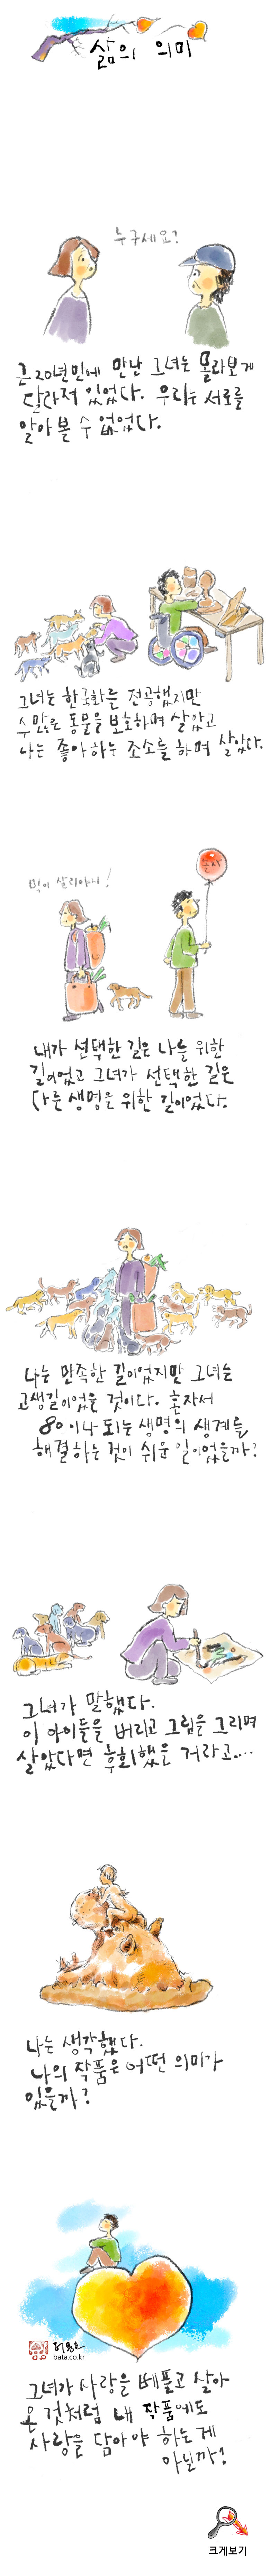 삶의 의미
누구세요?
근 20년만에 만난 그녀는 몰라보게
달라져 있었다. 우리는 서로를
알아 볼 수 없었다.
그녀는 한국화를 전공했지만
수많은 동물을 보호하며 살았고
나는 좋아하는 조소를 하며 살았다.
먹여 살리야니!
내가 선택한 길은 나를 위한
길이었고 그녀가 선택한 길은
다른 생명을 위한 길이었다.
나는 만족한 길이었지만 그녀는
고생길이었을 것이다. 혼자서
80이나 되는 생명의 생계를
해결하는 것이 쉬운 일이었을까?
그녀가 말했다.
이 아이들을 버리고 그림을 그리며
살았다면 후회했을 거라고....
나는 생각했다.
나의 작품은 어떤 의미가
있을까?
bata.co.kr
그녀가 사랑을 베풀고 살아
온 것처럼 내 작품에도
사랑을 담아야 하는 게
아닐까?
크게보기